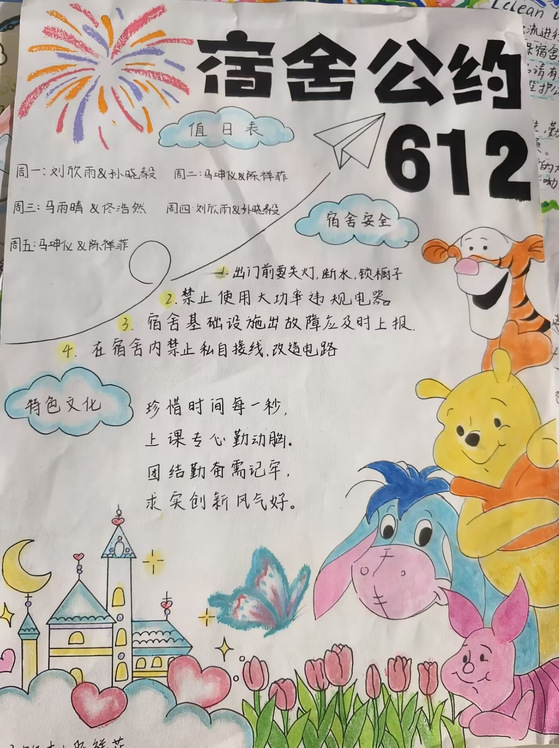 宿舍公约
612
值日表
周一:刘欣雨&孙晓毅 周二:马坤仪&陈祥菲
周三:马雨晴&佟浩然 周四:刘欣雨&孙晓毅
周五:马坤仪&陈祥菲
宿舍安全
1. 出门前要关灯,断水,锁柜子
2. 禁止使用大功率违规电器
3. 宿舍基础设施出故障应及时上报.
4. 在宿舍内禁止私自接线,改造电路
特色文化
珍惜时间每一秒,
上课专心勤动胸。
团结勤奋需记牢,
求实创新风气好。